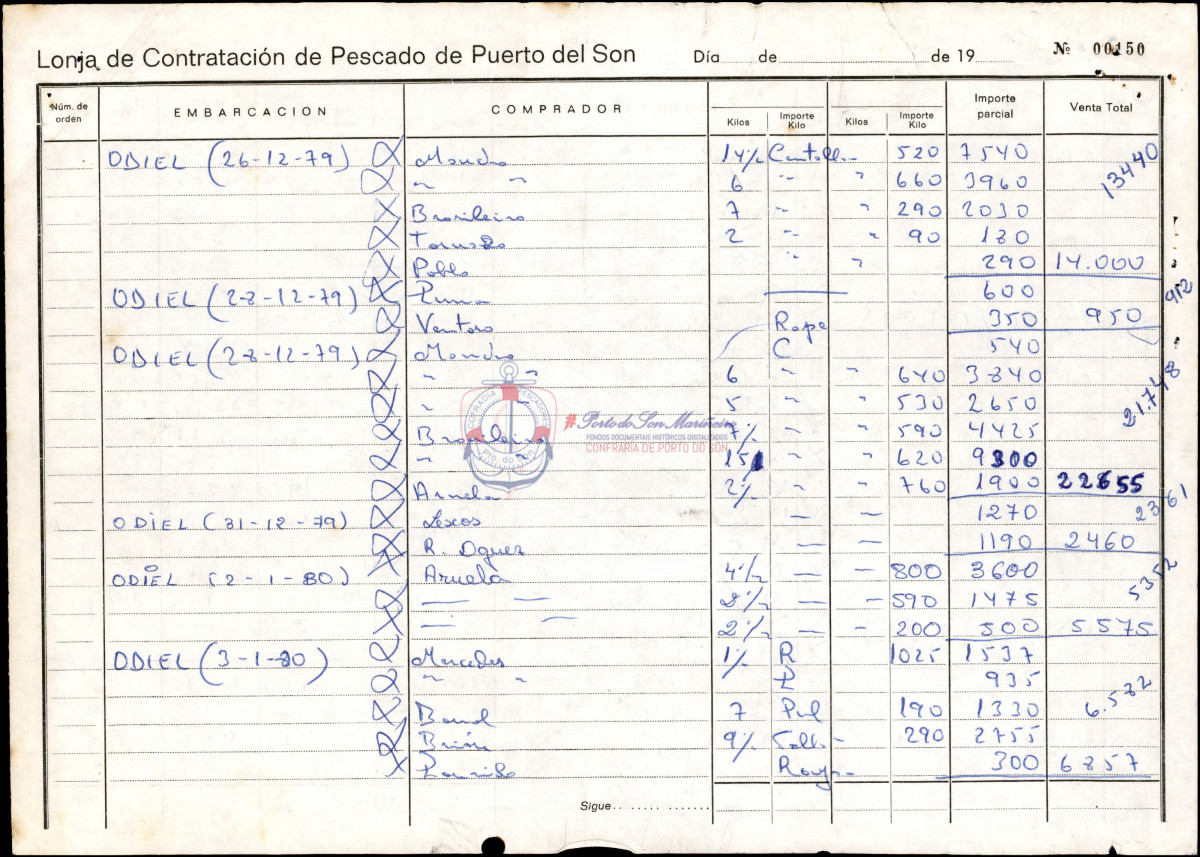 Lonja de Contratación de Pescado de Puerto del Son Día de de 19 Nº 00150
Núm. de orden EMBARCACION COMPRADOR Kilos Importe Kilo Kilos Importe Kilo Importe parcial Venta Total
ODIEL (26-12-79) 14½ 520 7540 13440
" " 6 " " 660 3960
Brasileiro 7 " " 290 2030
2 " " 90 180
Pablo " " 290 14.000
ODIEL (28-12-79) 600 952
Ventoso Rape 350 950
ODIEL (28-12-79) C 540
" " 6 " " 640 3840
" " 5 " " 530 2650 21.748
Brasileiro 7½ " " 590 4425
" " 15 " " 620 9300
Aruela 2½ " " 760 1900 22655
ODIEL (31-12-79) — — 1270 2361
R. Oguez — — 1190 2460
ODIEL (2-1-80) Aruela 4½ — — 800 3600
— — 2½ — — 590 1475 5352
— — 2½ — — 200 500 5575
ODIEL (3-1-80) Mercedes 1½ R 1025 1537
" " 935
7 Pul 190 1330 6.582
Brión 9½ 290 2755
300 6857
Sigue
COFRADIA PESCADORES
Pto. do Son
#Porto do Son Mariñeiro
FONDOS DOCUMENTAIS HISTÓRICOS DIGITALIZADOS
CONFRARIA DE PORTO DO SON